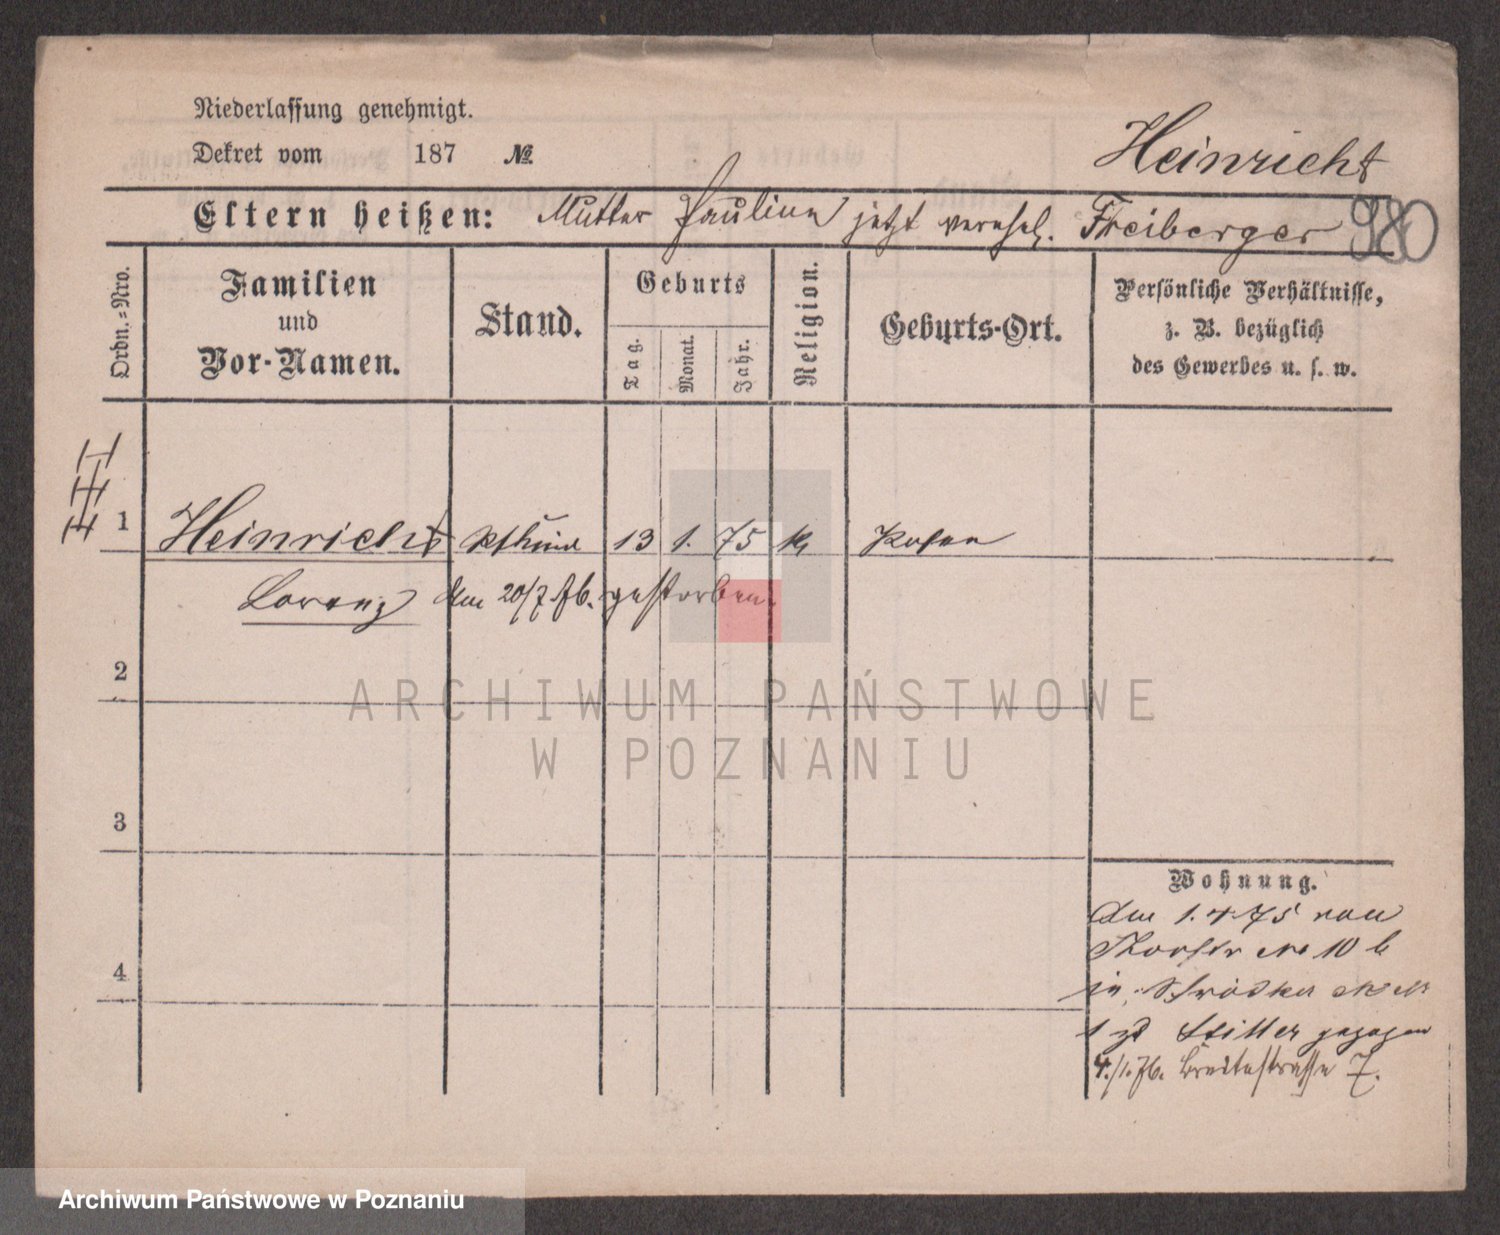 Niederlassung genehmigt.
Dekret vom 187 №
Heinricht
Eltern heißen: Mutter Pauline jetzt verehel. Freiberger
980
Ordn.-Nro.
Familien
und
Vor-Namen.
Stand.
Geburts
Tag.
Monat.
Jahr.
Religion.
Geburts-Ort.
Persönliche Verhältnisse,
z. B. bezüglich
des Gewerbes u. s. w.
1 Heinricht 13 1. 75 k Posen
Lorenz Am 20/7 76. gestorben.
2
ARCHIWUM PAŃSTWOWE
W POZNANIU
3
Wohnung.
Am 1. 4 75 von
No 10 b
4
in
1 zu Stiller gezogen
4./1. 76. Breitestrasse 7.
Archiwum Państwowe w Poznaniu